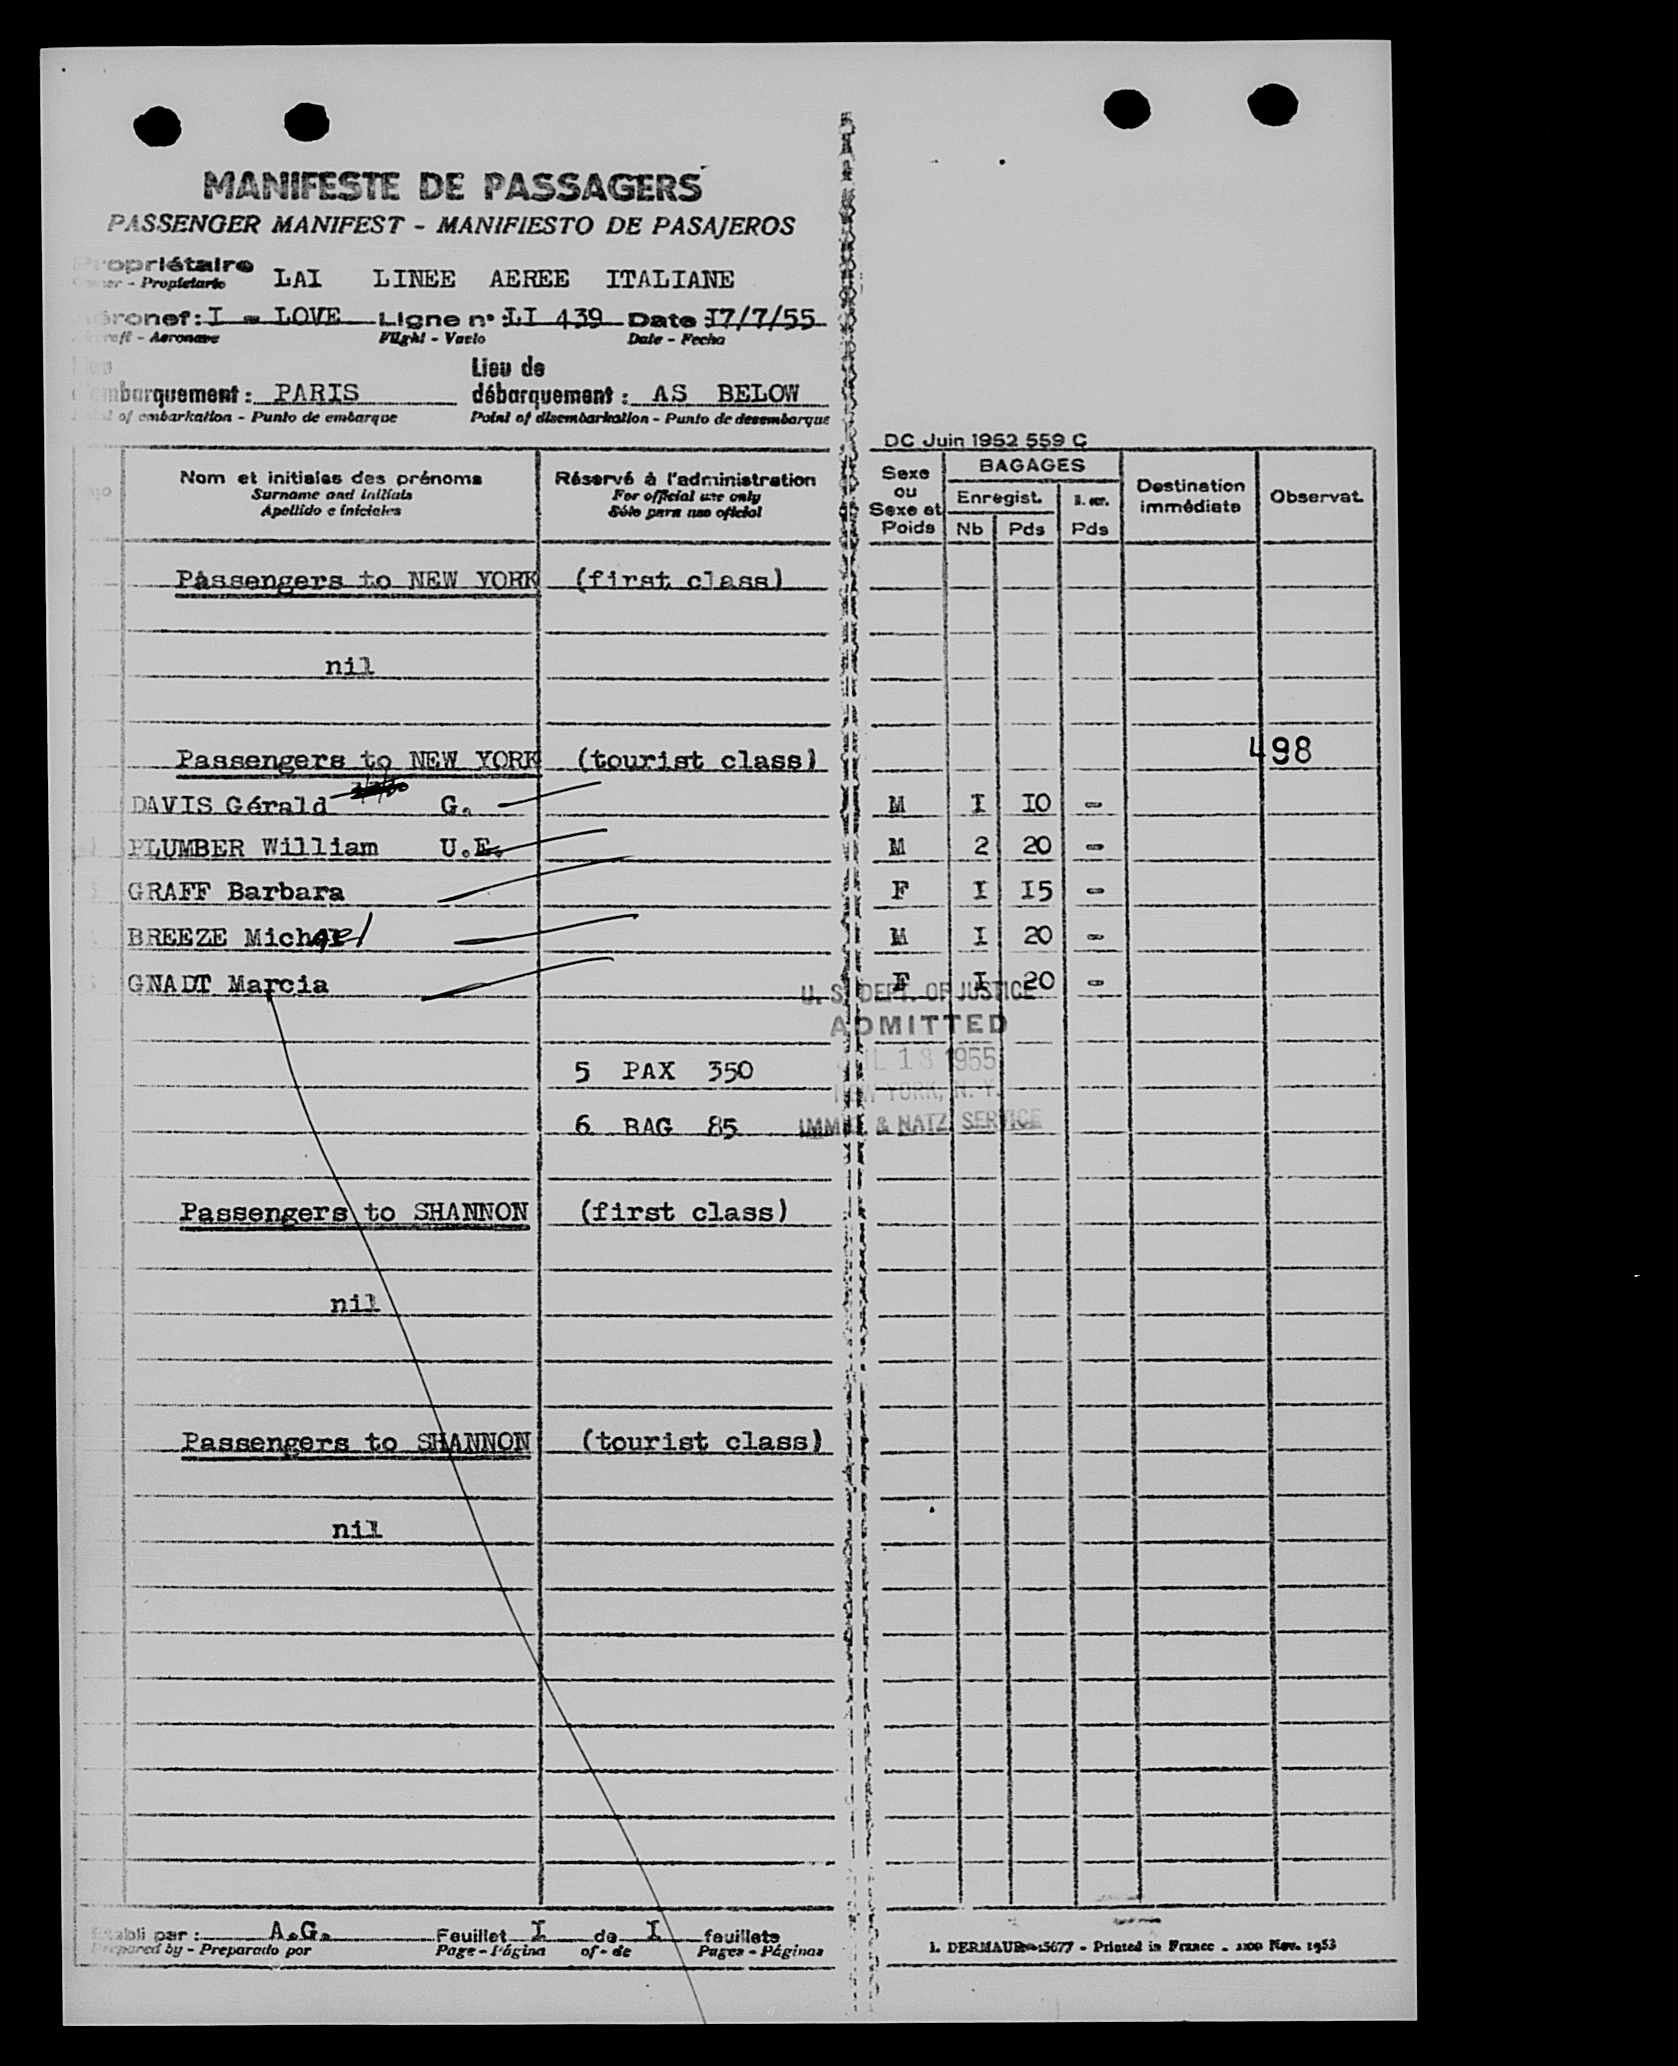 MANIFESTE DE PASSAGERS
PASSENGER MANIFEST - MANIFIESTO DE PASAJEROS
Propriétaire LAI LINEE AEREE ITALIANE
Owner - Propietario
Aéronef: I - LOVE Ligne n° LI 439 Date I7/7/55
Aircraft - Aeronave Flight - Vuelo Date - Fecha
Lieu d'embarquement: PARIS Lieu de débarquement: AS BELOW
Point of embarkation - Punto de embarque Point of disembarkation - Punto de desembarque
DC Juin 1952 559 C
Nom et initiales des prénoms Réservé à l'administration Sexe ou Sexe et Poids BAGAGES Destination immédiate Observat.
Surname and initials For official use only Enregist.
Apellido e iniciales Sólo para uso oficial Nb Pds Pds
Passengers to NEW YORK (first class)
nil
Passengers to NEW YORK (tourist class) 498
DAVIS Gérald G. M I IO -
PLUMBER William U.E. M 2 20 -
GRAFF Barbara F I I5 -
BREEZE Michael M I 20 -
GNADT Marcia F I 20 -
U. S. DEPT. OF JUSTICE
ADMITTED
5 PAX 350 JUL 18 1955
NEW YORK, N. Y.
6 BAG 85 IMMIG. & NATZ. SERVICE
Passengers to SHANNON (first class)
nil
Passengers to SHANNON (tourist class)
nil
Etabli par: A.G. Feuillet I de I feuillets
Prepared by - Preparado por Page - Página of - de Pages - Páginas
- Printed in France - Nov. 1953